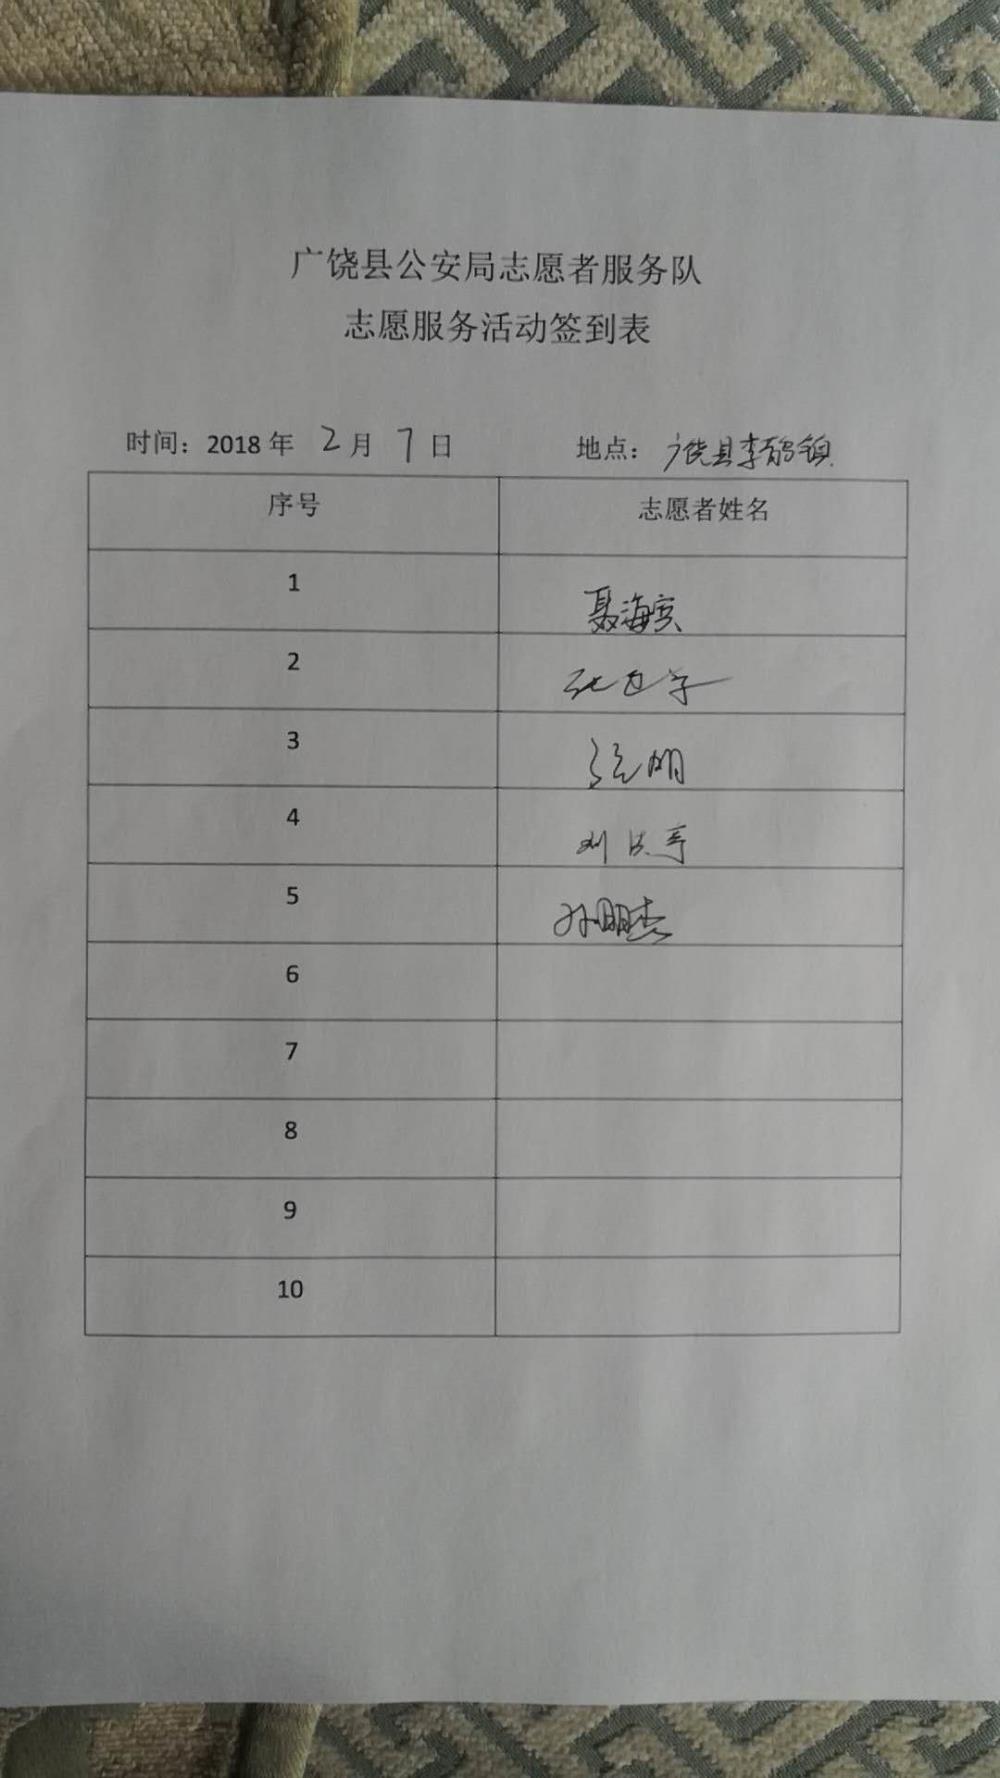 广饶县公安局志愿者服务队
志愿服务活动签到表
时间：2018年 2月 7日 地点：广饶县李鹊镇
序号 志愿者姓名
1 聂海宾
2
3 张明
4 刘
5 孙明杰
6
7
8
9
10